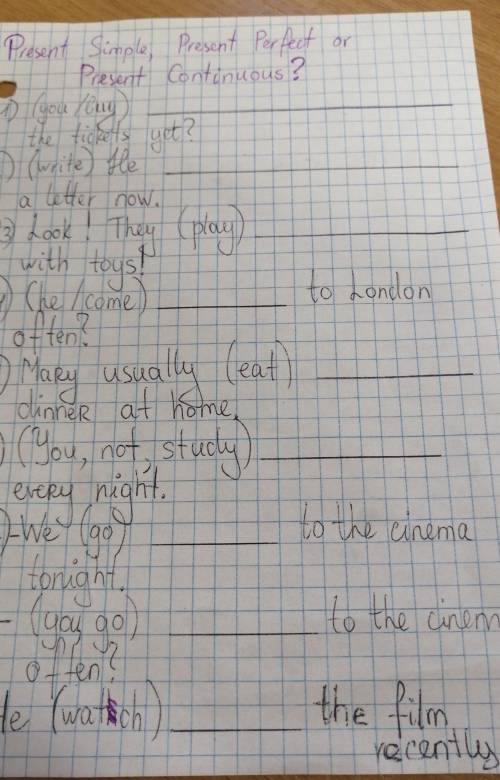 Present Simple, Present Perfect or
Present Continuous?
1) (you/buy) ____________
the tickets yet?
) (write) He ____________
a letter now.
3) Look! They (play) ____________
with toys!
) (he/come) ____________ to London
often?
) Mary usually (eat) ____________
dinner at home.
) (You, not, study) ____________
every night.
)-We (go) ____________ to the cinema
tonight.
- (you go) ____________ to the cinem
often?
He (watch) ____________ the film
recently